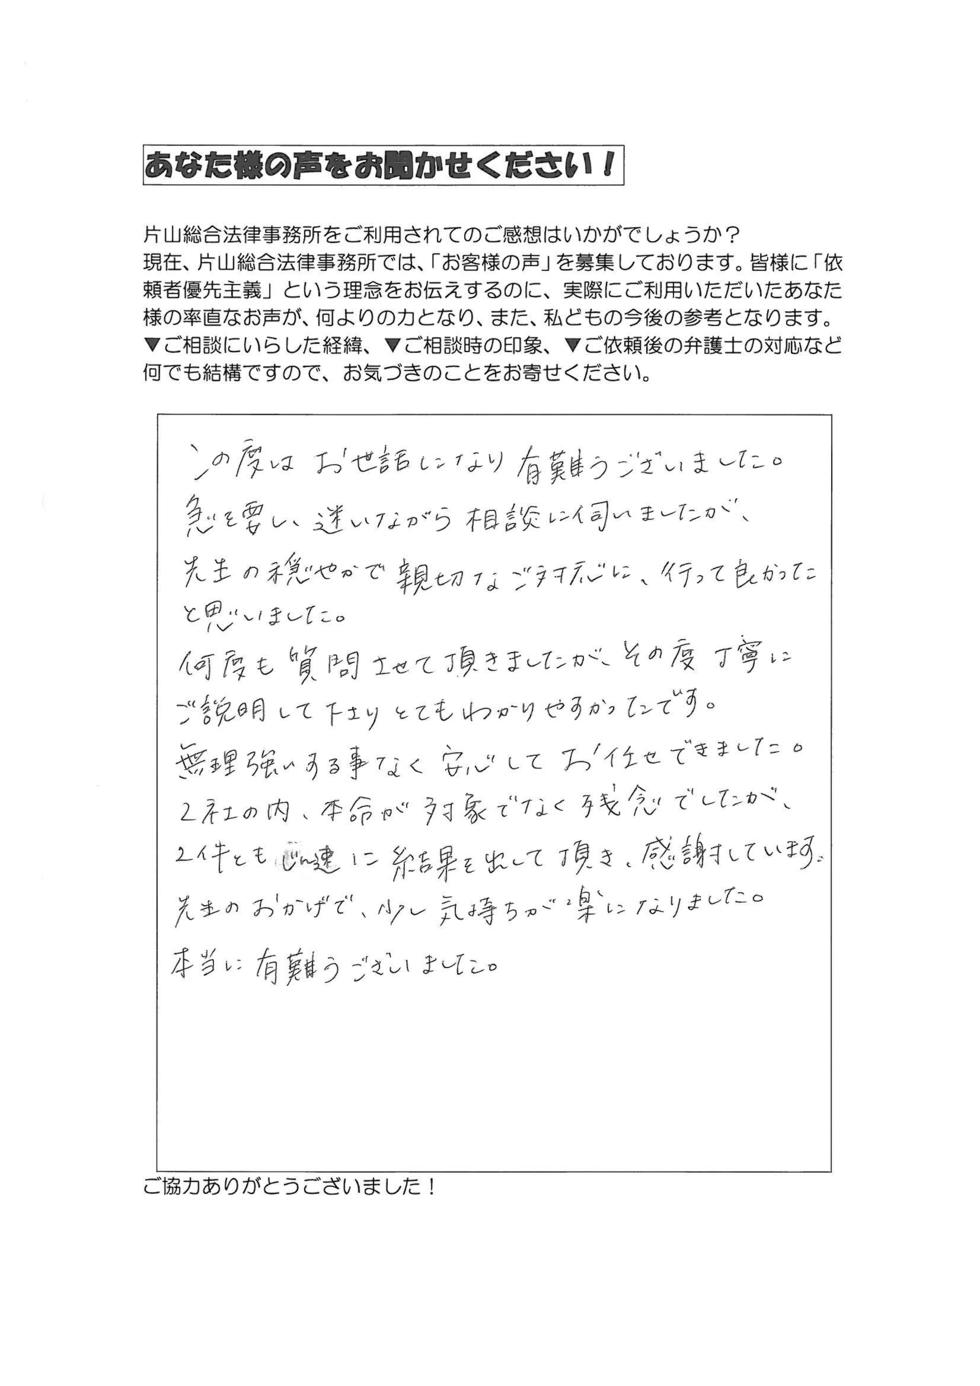 あなた様の声をお聞かせください！
片山総合法律事務所をご利用されてのご感想はいかがでしょうか？
現在、片山総合法律事務所では、「お客様の声」を募集しております。皆様に「依
頼者優先主義」という理念をお伝えするのに、実際にご利用いただいたあなた
様の率直なお声が、何よりの力となり、また、私どもの今後の参考となります。
▼ご相談にいらした経緯、▼ご相談時の印象、▼ご依頼後の弁護士の対応など
何でも結構ですので、お気づきのことをお寄せください。
この度は お世話になり 有難うございました。
急を要し、迷いながら 相談に伺いましたが、
先生の穏やかで親切なご対応に、行って良かった
と思いました。
何度も質問させて頂きましたが、その度丁寧に
ご説明して下さり とてもわかりやすかったです。
無理強いする事なく 安心して お任せできました。
2社の内、本命が対象でなく残念でしたが、
2件とも 速に 結果を出して頂き、感謝しています。
先生のおかげで、少し気持ちが楽になりました。
本当に有難うございました。
ご協力ありがとうございました！